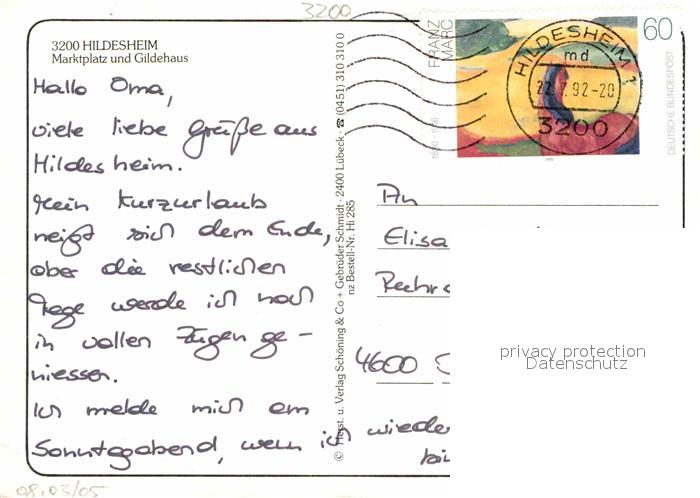 3200
3200 HILDESHEIM
Marktplatz und Gildehaus
Hallo Oma,
viele liebe Grüße aus
Hildesheim.
Mein Kurzurlaub
neigt sich dem Ende,
aber die restlichen
Tage werde ich noch
in vollen Zügen ge-
niessen.
Ich melde mich am
Sonntagabend, wenn ich wieder
bin
© Herst. u. Verlag Schöning & Co + Gebrüder Schmidt · 2400 Lübeck · ☎ (0451) 310 310 0
nz Bestell-Nr. Hi 285
FRANZ
MARC
60
DEUTSCHE BUNDESPOST
HILDESHEIM 1
md
22.7.92-20
3200
An
Elisa
4600
privacy protection
Datenschutz
08.03/05